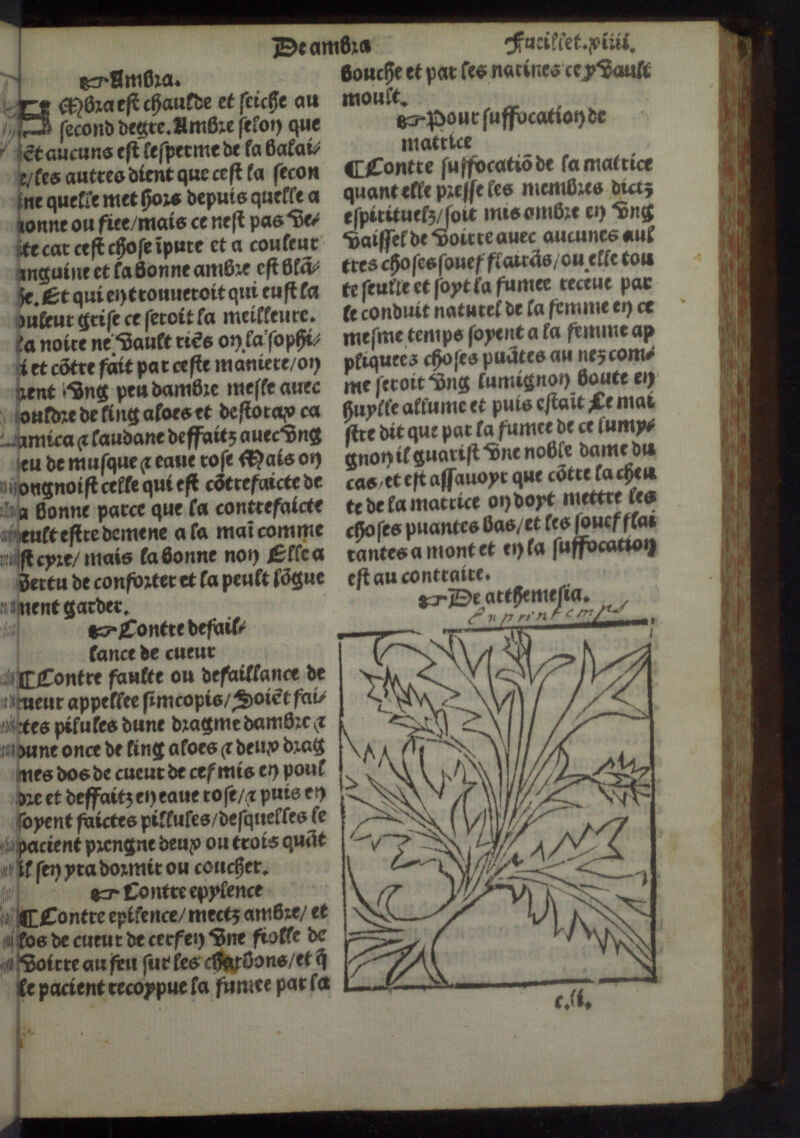 De ambra
Fueillet.xiiii.
☞Ambra.
Mbra est chaulde et seiche au
second degre. Ambre selon que
aucuns est lesperme de la balai⸗
/les autres dient que cest la secon
ne quelle met hors depuis quelle a
ou fiee/mais ce nest pas ve⸗
te car cest chose ĩpure et a couleur
et la bonne ambre est blã⸗
. Et qui en trouueroit qui eust la
grise ce seroit la meilleure.
a noire ne vault riẽs on la sophi⸗
et cõtre fait par ceste maniere/on
vng peu dambre mesle auec
de ling aloes et destorax ca
⁊ laudane deffaitz auec vng
eu de musque ⁊ eaue rose Mais on
celle qui est cõtrefaicte de
a bonne parce que la contrefaicte
estre demene a la mai comme
cyre/ mais la bonne non Elle a
vertu de conforter et la peult lõgue
ment garder.
☞Contre defail⸗
lance de cueur
¶Contre faulte ou defaillance de
cueur appellee sincopis/Soiẽt fai⸗
ctes pilules dune dragme dambre ⁊
dune once de ling aloes ⁊ deux drag
mes dos de cueur de cef mis en poul
dre et deffaitz en eaue rose/⁊ puis en
soyent faictes pillules/desquelles le
pacient prengne deux ou trois quãt
il sen yra dormir ou coucher.
☞Contre epylence
¶Contre epilence/mectz ambre/ et
los de cueur de cerf en vne fiolle de
voirre au feu sur les charbons/et q̃
le pacient recoppue la fumee par la
bouche et par les narines ce y vault
moult.
☞Pour suffocation de
matrice
¶Contre suffocatiõ de la matrice
quant elle presse les membres dictz
espirituelz/soit mis ombre en vng
vaissel de voirre auec aucunes aul
tres choses souef flairãs/ou elle tou
te seulle et soyt la fumee receue par
le conduit naturel de la femme en ce
mesme temps soyent a la femme ap
pliquees choses puãtes au nez com⸗
me seroit vng lumignon boute en
huylle allume et puis estait Le mai
stre dit que par la fumee de ce lumy⸗
gnon il guarist vne noble dame du
cas/et est assauoyr que cõtre la cheu
te de la matrice on doyt mettre les
choses puantes bas/et les souef flai
rantes a mont et en la suffocation
est au contraire.
☞De arthemesia.
en printemps
c.ii.